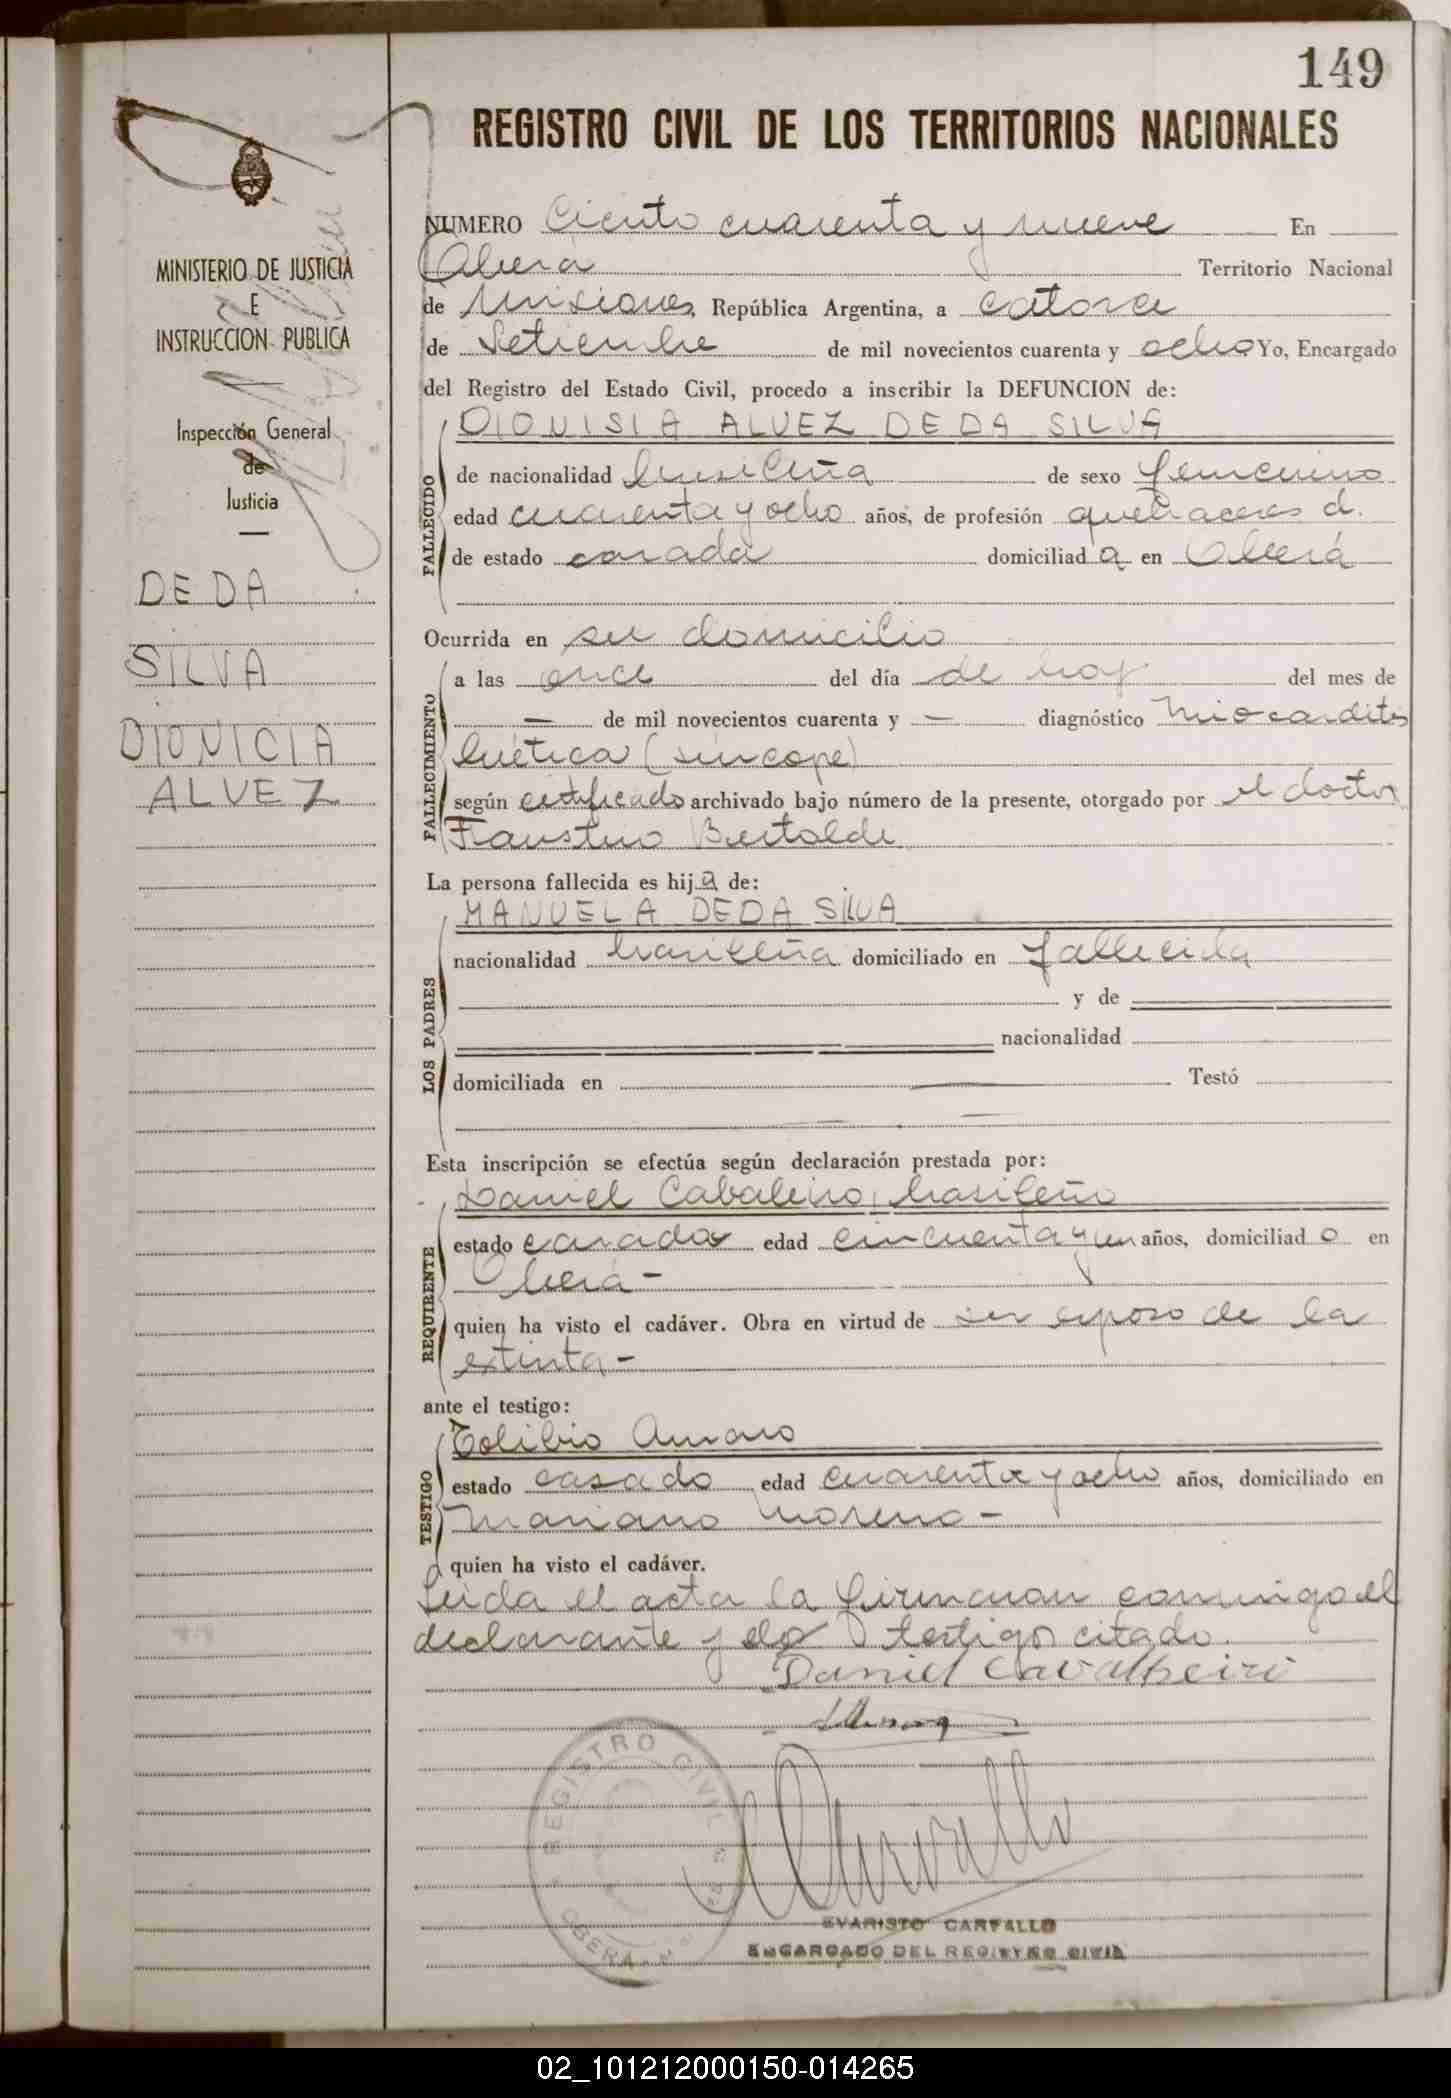 149
REGISTRO CIVIL DE LOS TERRITORIOS NACIONALES
MINISTERIO DE JUSTICIA
E
INSTRUCCION PUBLICA
Inspección General
de
Justicia
DE DA
SILVA
DIONICIA
ALVEZ
NUMERO Ciento cuarenta y nueve En
Oberá Territorio Nacional
de Misiones, República Argentina, a catorce
de Setiembre de mil novecientos cuarenta y ocho Yo, Encargado
del Registro del Estado Civil, procedo a inscribir la DEFUNCION de:
DIONISIA ALVEZ DE DA SILVA
FALLECIDO
de nacionalidad brasileña de sexo femenino
edad cuarenta y ocho años, de profesión quehaceres d.
de estado casada domiciliada en Oberá
Ocurrida en su domicilio
FALLECIMIENTO
a las once del día de hoy del mes de
— de mil novecientos cuarenta y — diagnóstico Miocarditis
luética (síncope)
según certificado archivado bajo número de la presente, otorgado por el doctor
Faustino Bertoldi
La persona fallecida es hija de:
LOS PADRES
MANUELA DE DA SILVA
nacionalidad brasileña domiciliado en fallecida
y de
nacionalidad
domiciliada en Testó
Esta inscripción se efectúa según declaración prestada por:
REQUIRENTE
Daniel Cabaleiro, brasileño
estado casado edad cincuenta y un años, domiciliado en
Oberá -
quien ha visto el cadáver. Obra en virtud de ser esposo de la
extinta -
ante el testigo:
TESTIGO
Tolibio Amaro
estado casado edad cuarenta y ocho años, domiciliado en
Mariano Moreno -
quien ha visto el cadáver.
Leida el acta la firmaron conmigo el
declarante y el testigo citado.
Daniel Cavalheiri
REGISTRO CIVIL
OBERA
EVARISTO CARVALLO
ENCARGADO DEL REGISTRO CIVIL
02_101212000150-014265